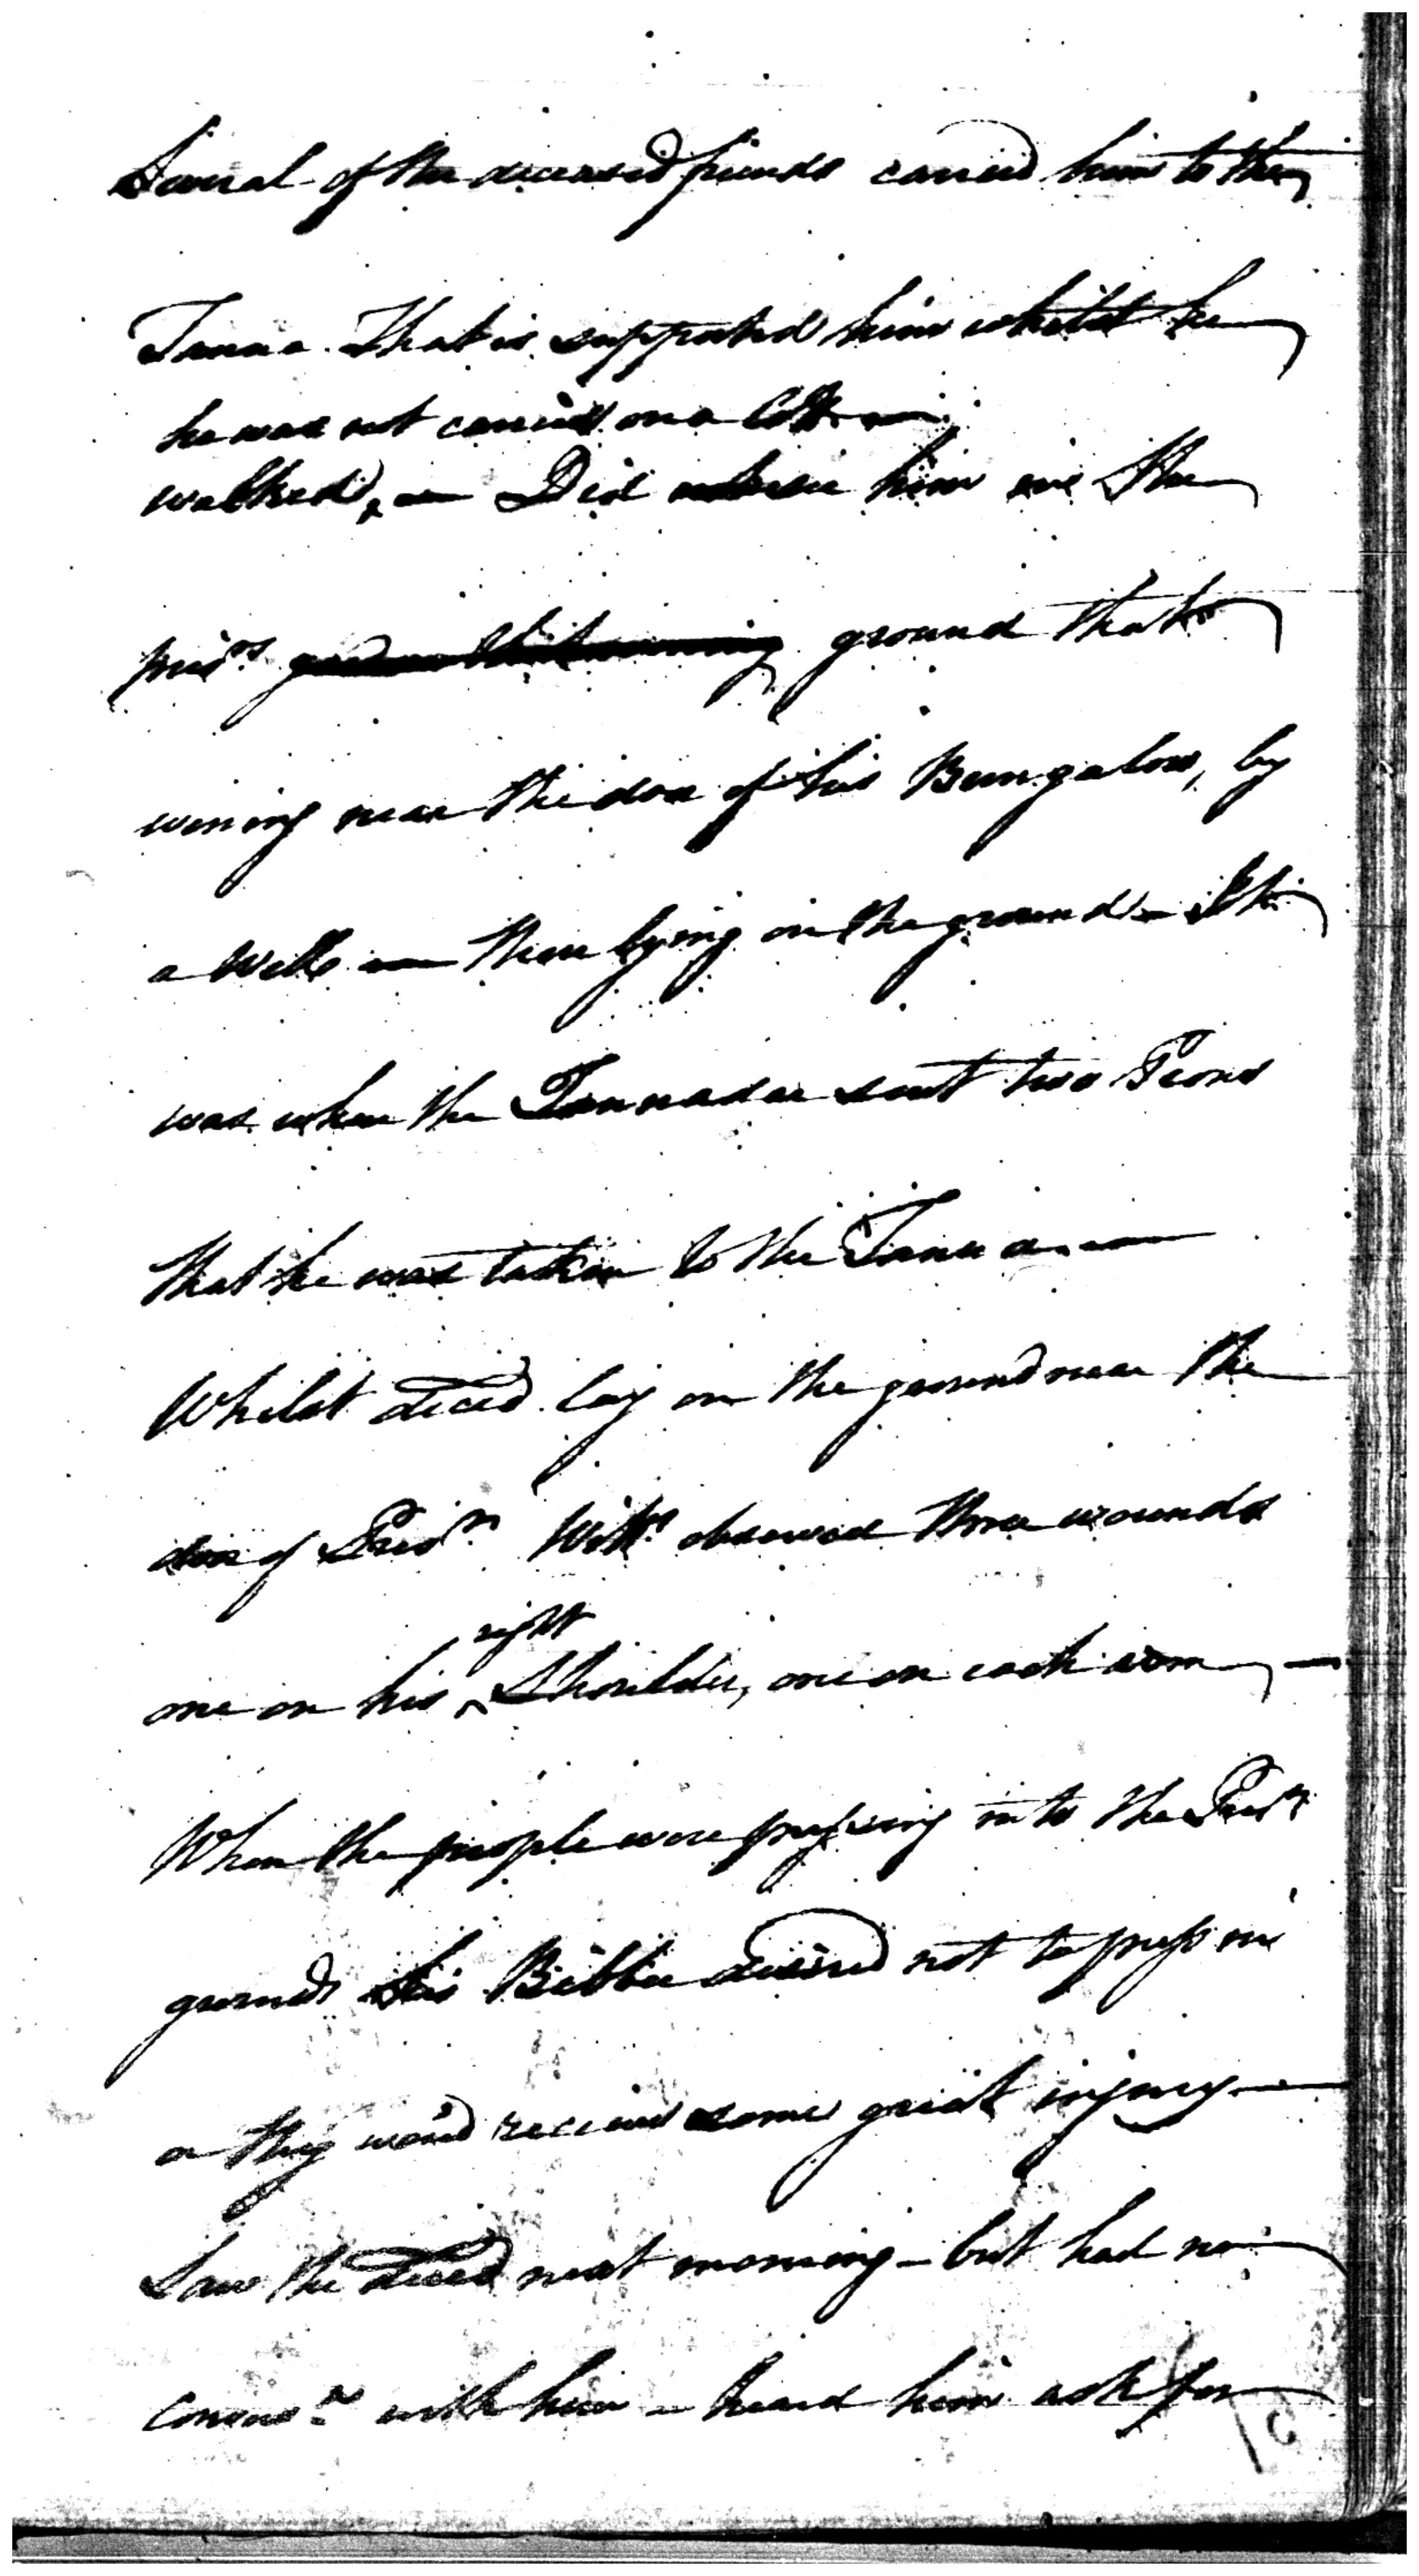 Several of the deceased friends carried him to the
Tanna. That is supported him whilst he
he was not carried on a Cott
walked, Did see him in the
pris.rs ground that
near the door of his Bungalow, by
a Well — then lying on the ground — It
was when the Tannadar sent two Peons
that he was taken to the Tanna —
Whilst deced lay on the ground near the
door of Pris.r Witts observed three wounds
right
one on his ^ Shoulder, one on each arm —
When the people were pressing into the Pris.rs
ground his Bibbee desired not to press in
or they wou'd receive some great injury —
Saw the deced next morning — but had no
convers.n with him — heard him ask for